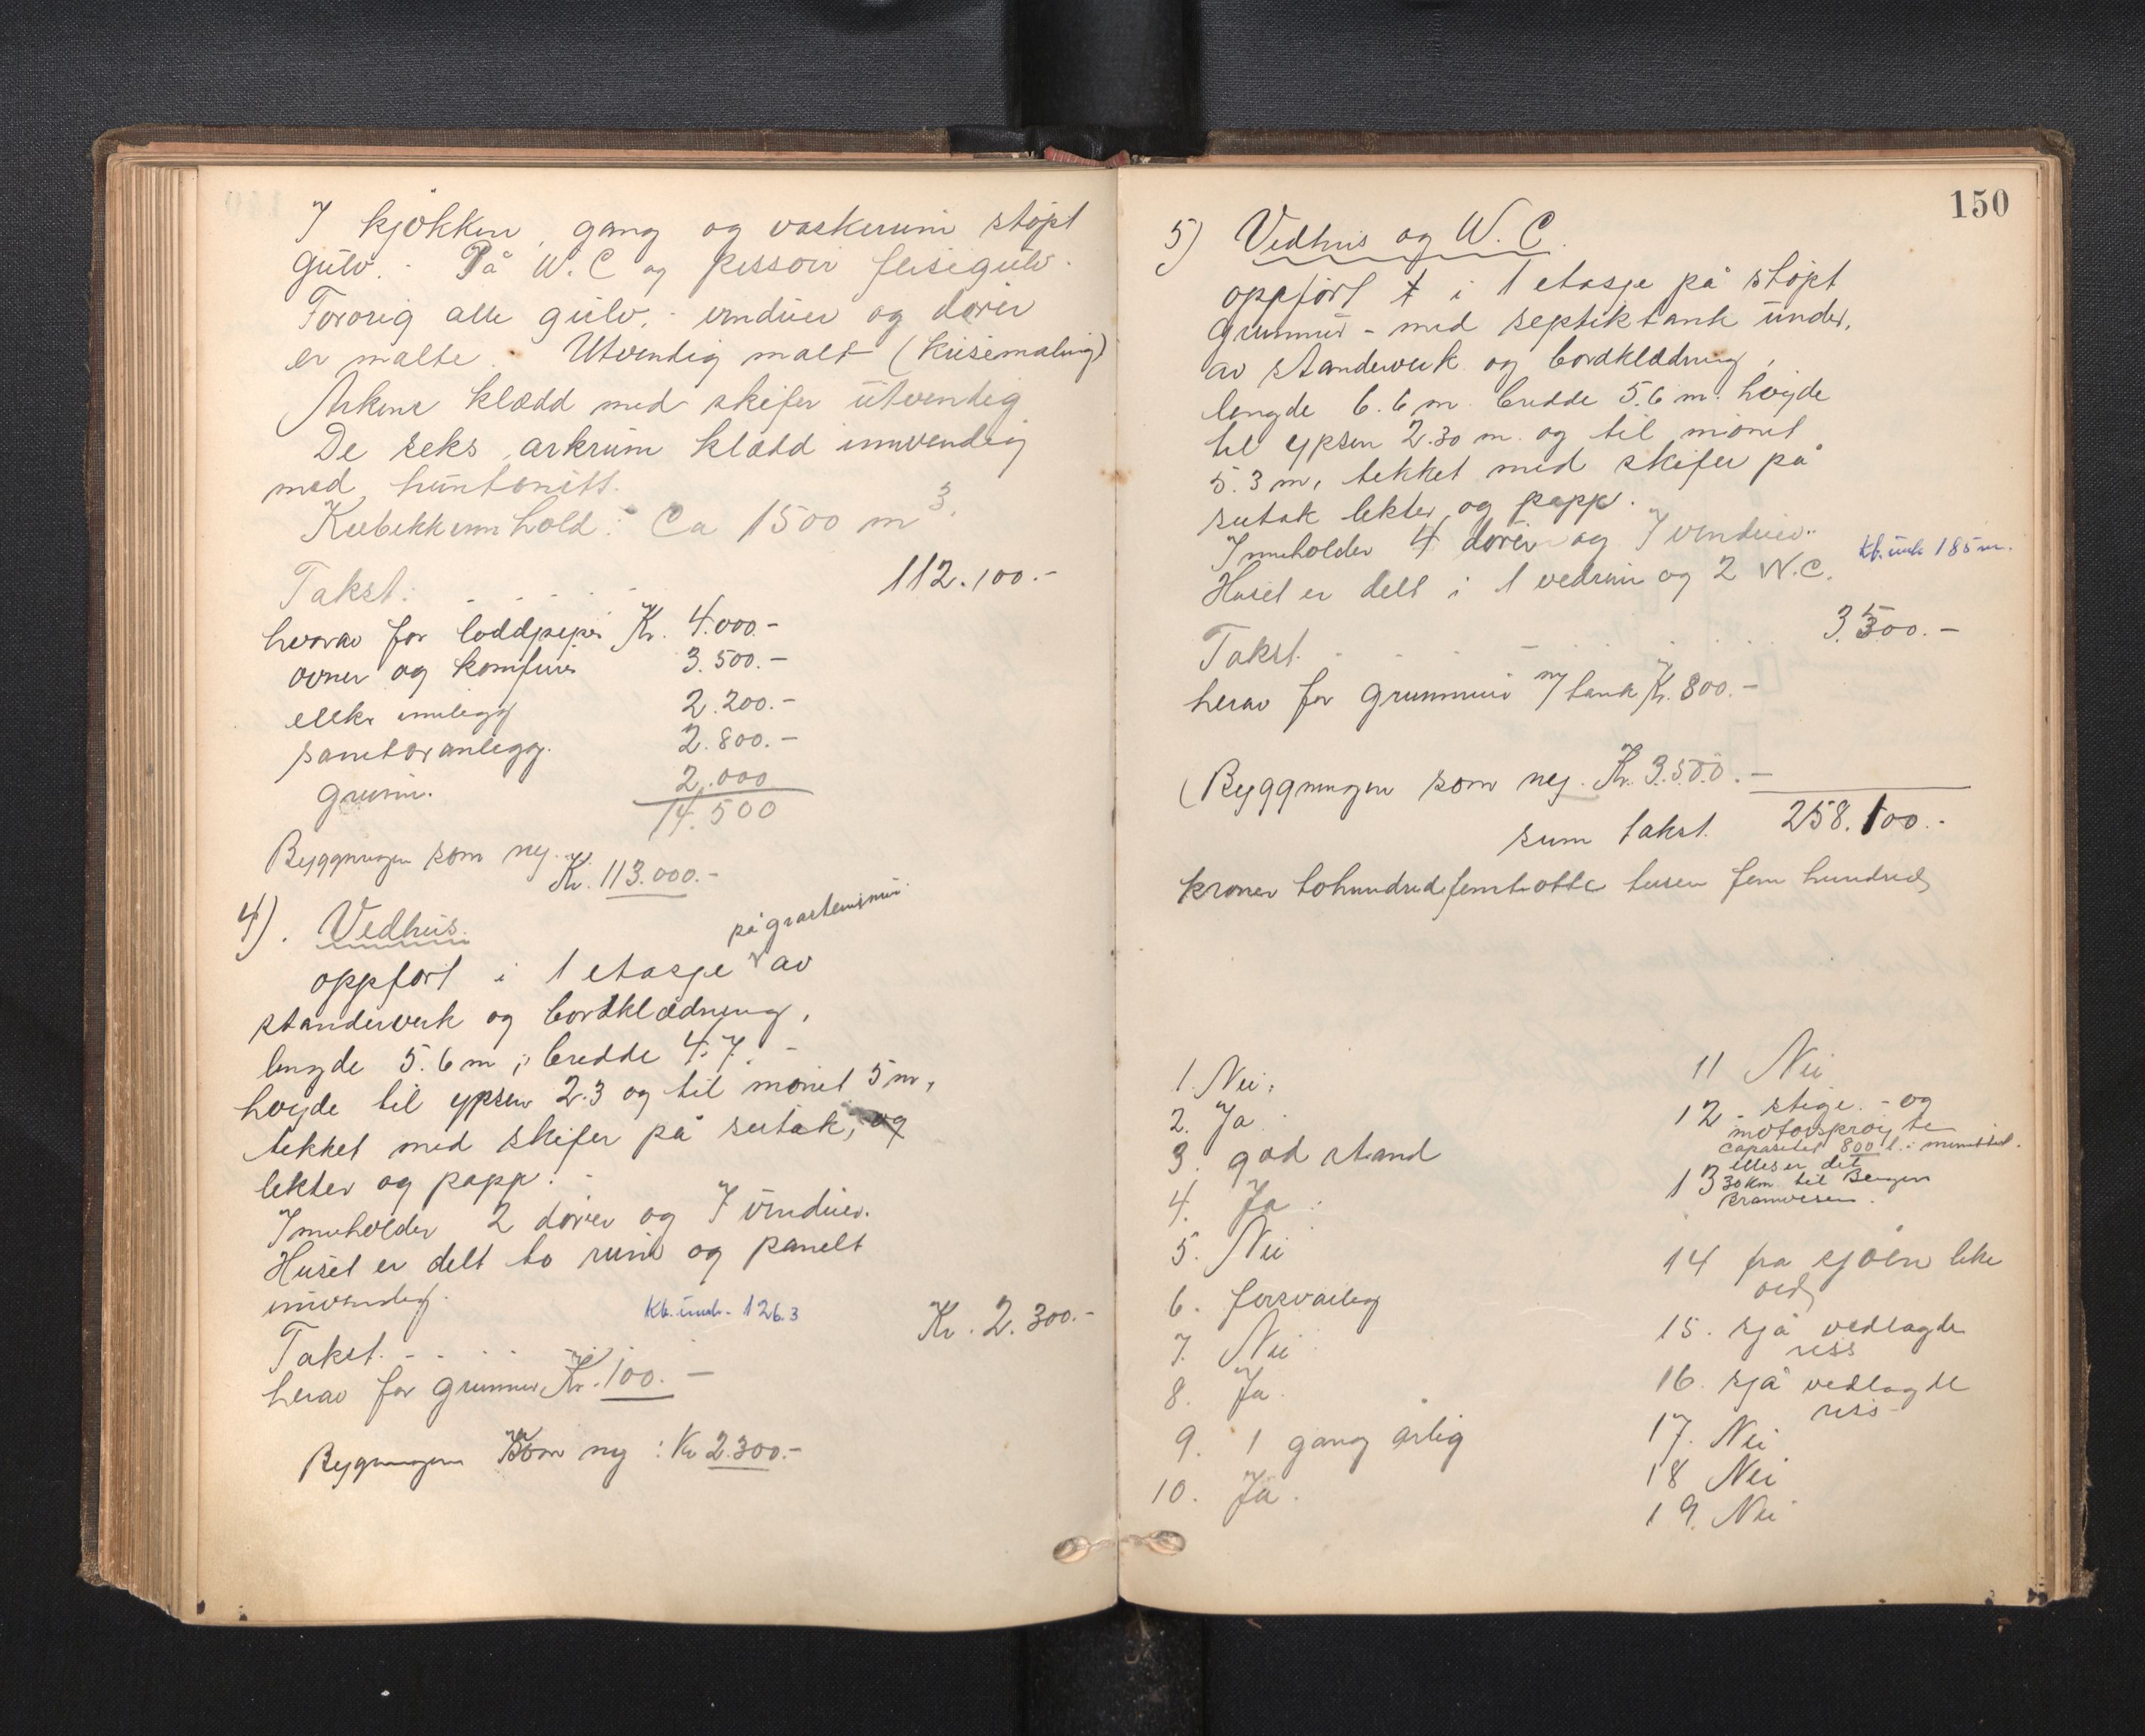 I kjøkken, gang og vaskerum støpt
gulv. - På W.C og pissoir flisegulv.
Forøvrig alle gulv, - vinduer og dører
er malte. Utvendig malt (kisemaling)
Arkene klædd med skifer utvendig
De seks arkrum klædd innvendig
med huntonitt.
Kubikkinnhold: Ca 1500 m3.
Takst: . . . . . 112.100.-
hvorav for loddpiper Kr. 4.000.-
ovner og komfurer 3.500.-
elektr innlegg 2.200.-
sanitæranlegg. 2.800.-
grunn. 2.000
14.500
Byggningen som ny.
Kr. 113.000.-
4). Vedhus.
på gråsteinsmur.
oppført i 1 etasje av
standerverk og bordklædning,
lengde 5.6 m, bredde 4.7. -
høyde til ypsen 2.3 og til mønet 5 m,
tekket med skifer på sutak, og
lekter og papp. -
Inneholder 2 dører og 7 vinduer.
Huset er delt to rum og panelt
innvendig.
Kb. innh. 126.3
Takst. - . . . . . Kr. 2.300.-
herav for grunnmur Kr. 100. -
Bygningen som ny : Kr 2.300.-
150
5) Vedhus og W.C.
oppført i 1 etasje på støpt
grunnmur - med septiktank under,
av standerverk og bordklædning,
lengde 6.6 m. bredde 5.6 m. høyde
til ypsen 2.30 m. og til mønet
5.3 m, tekket med skifer på
sutak lekter og papp.
Inneholder 4 dører og 7 vinduer.
Kb. innh 185 m.
Huset er delt i 1 vedrum og 2 W.C.
Takst. . . . - . . . . 3.500.-
herav for grunnmur m/tank Kr. 800.-
(Byggningen som ny. Kr. 3.500.-
sum takst. 258.100.-
kroner tohundredfemtiotte tusen fem hundred
1. Nei.
2. Ja
3. god stand
4. Ja
5. Nei
6. forsvarlig
7. Nei
8. Ja.
9. 1 gang årlig
10. Ja.
11 Nei
12 - stige - og
motorsprøyte
capasitet 800 l. i minuttet.
elles er det
13 30 km til Bergen
Brannvesen.
14 fra sjøen like
ved
15. sjå vedlagde
riss
16. sjå vedlagde
riss
17. Nei
18 Nei
19. Nei